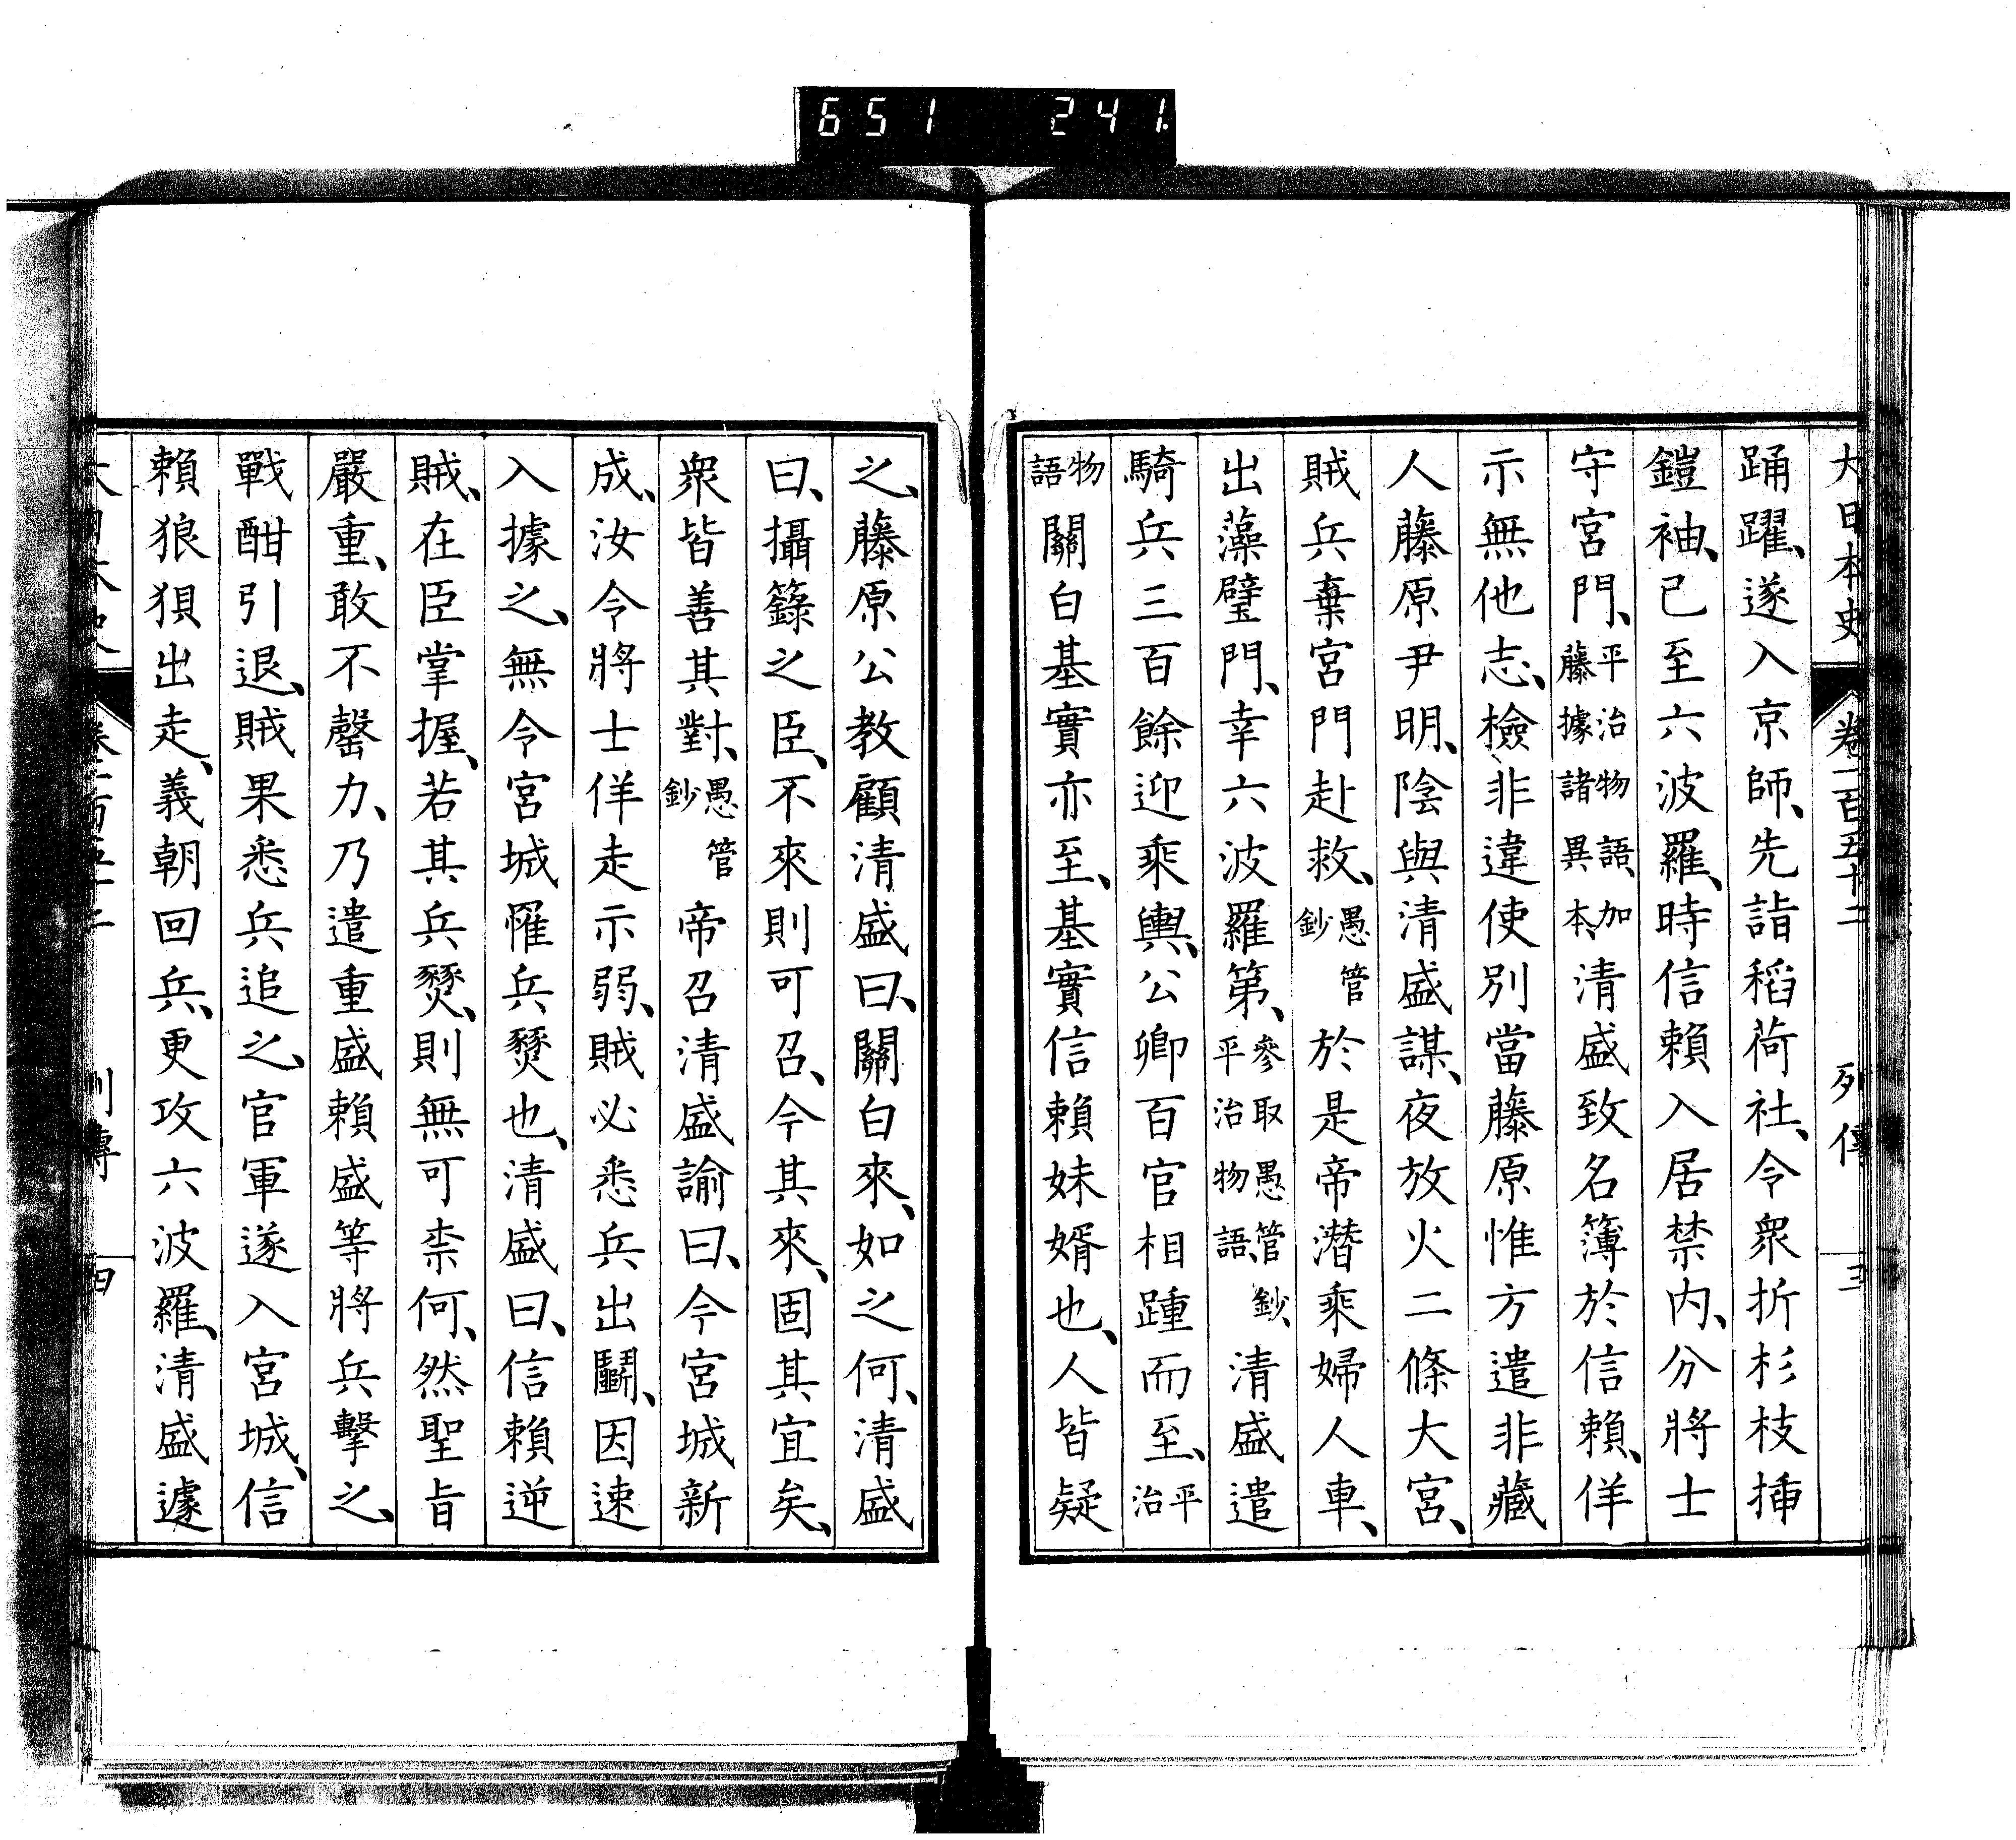 651 241.
大日本史 卷一百五十二 列傳 三
踊躍、遂入京師、先詣稻荷社、令衆折杉枝揷
鎧袖、已至六波羅、時信賴入居禁內、分將士
守宮門、平治物語、加藤據諸異本、清盛致名簿於信賴、佯
示無他志、檢非違使別當藤原惟方遣非藏
人藤原尹明、陰與清盛謀、夜放火二條大宮、
賊兵棄宮門赴救、愚管鈔於是帝潛乘婦人車、
出藻璧門、幸六波羅第、參取愚管鈔、平治物語、清盛遣
騎兵三百餘迎乘輿、公卿百官相踵而至、平治
物語關白基實亦至、基實信賴妹婿也、人皆疑
之、藤原公教顧清盛曰、關白來、如之何、清盛
曰、攝籙之臣、不來則可召、今其來、固其宜矣、
衆皆善其對、愚管鈔帝召清盛諭曰、今宮城新
成、汝令將士佯走示弱、賊必悉兵出鬭、因速
入據之、無令宮城罹兵燹也、清盛曰、信賴逆
賊、在臣掌握、若其兵燹、則無可柰何、然聖旨
嚴重、敢不罄力、乃遣重盛賴盛等將兵擊之、
戰酣引退、賊果悉兵追之、官軍遂入宮城、信
賴狼狽出走、義朝回兵、更攻六波羅、清盛遽
大日本史 卷一百五十二 列傳 四